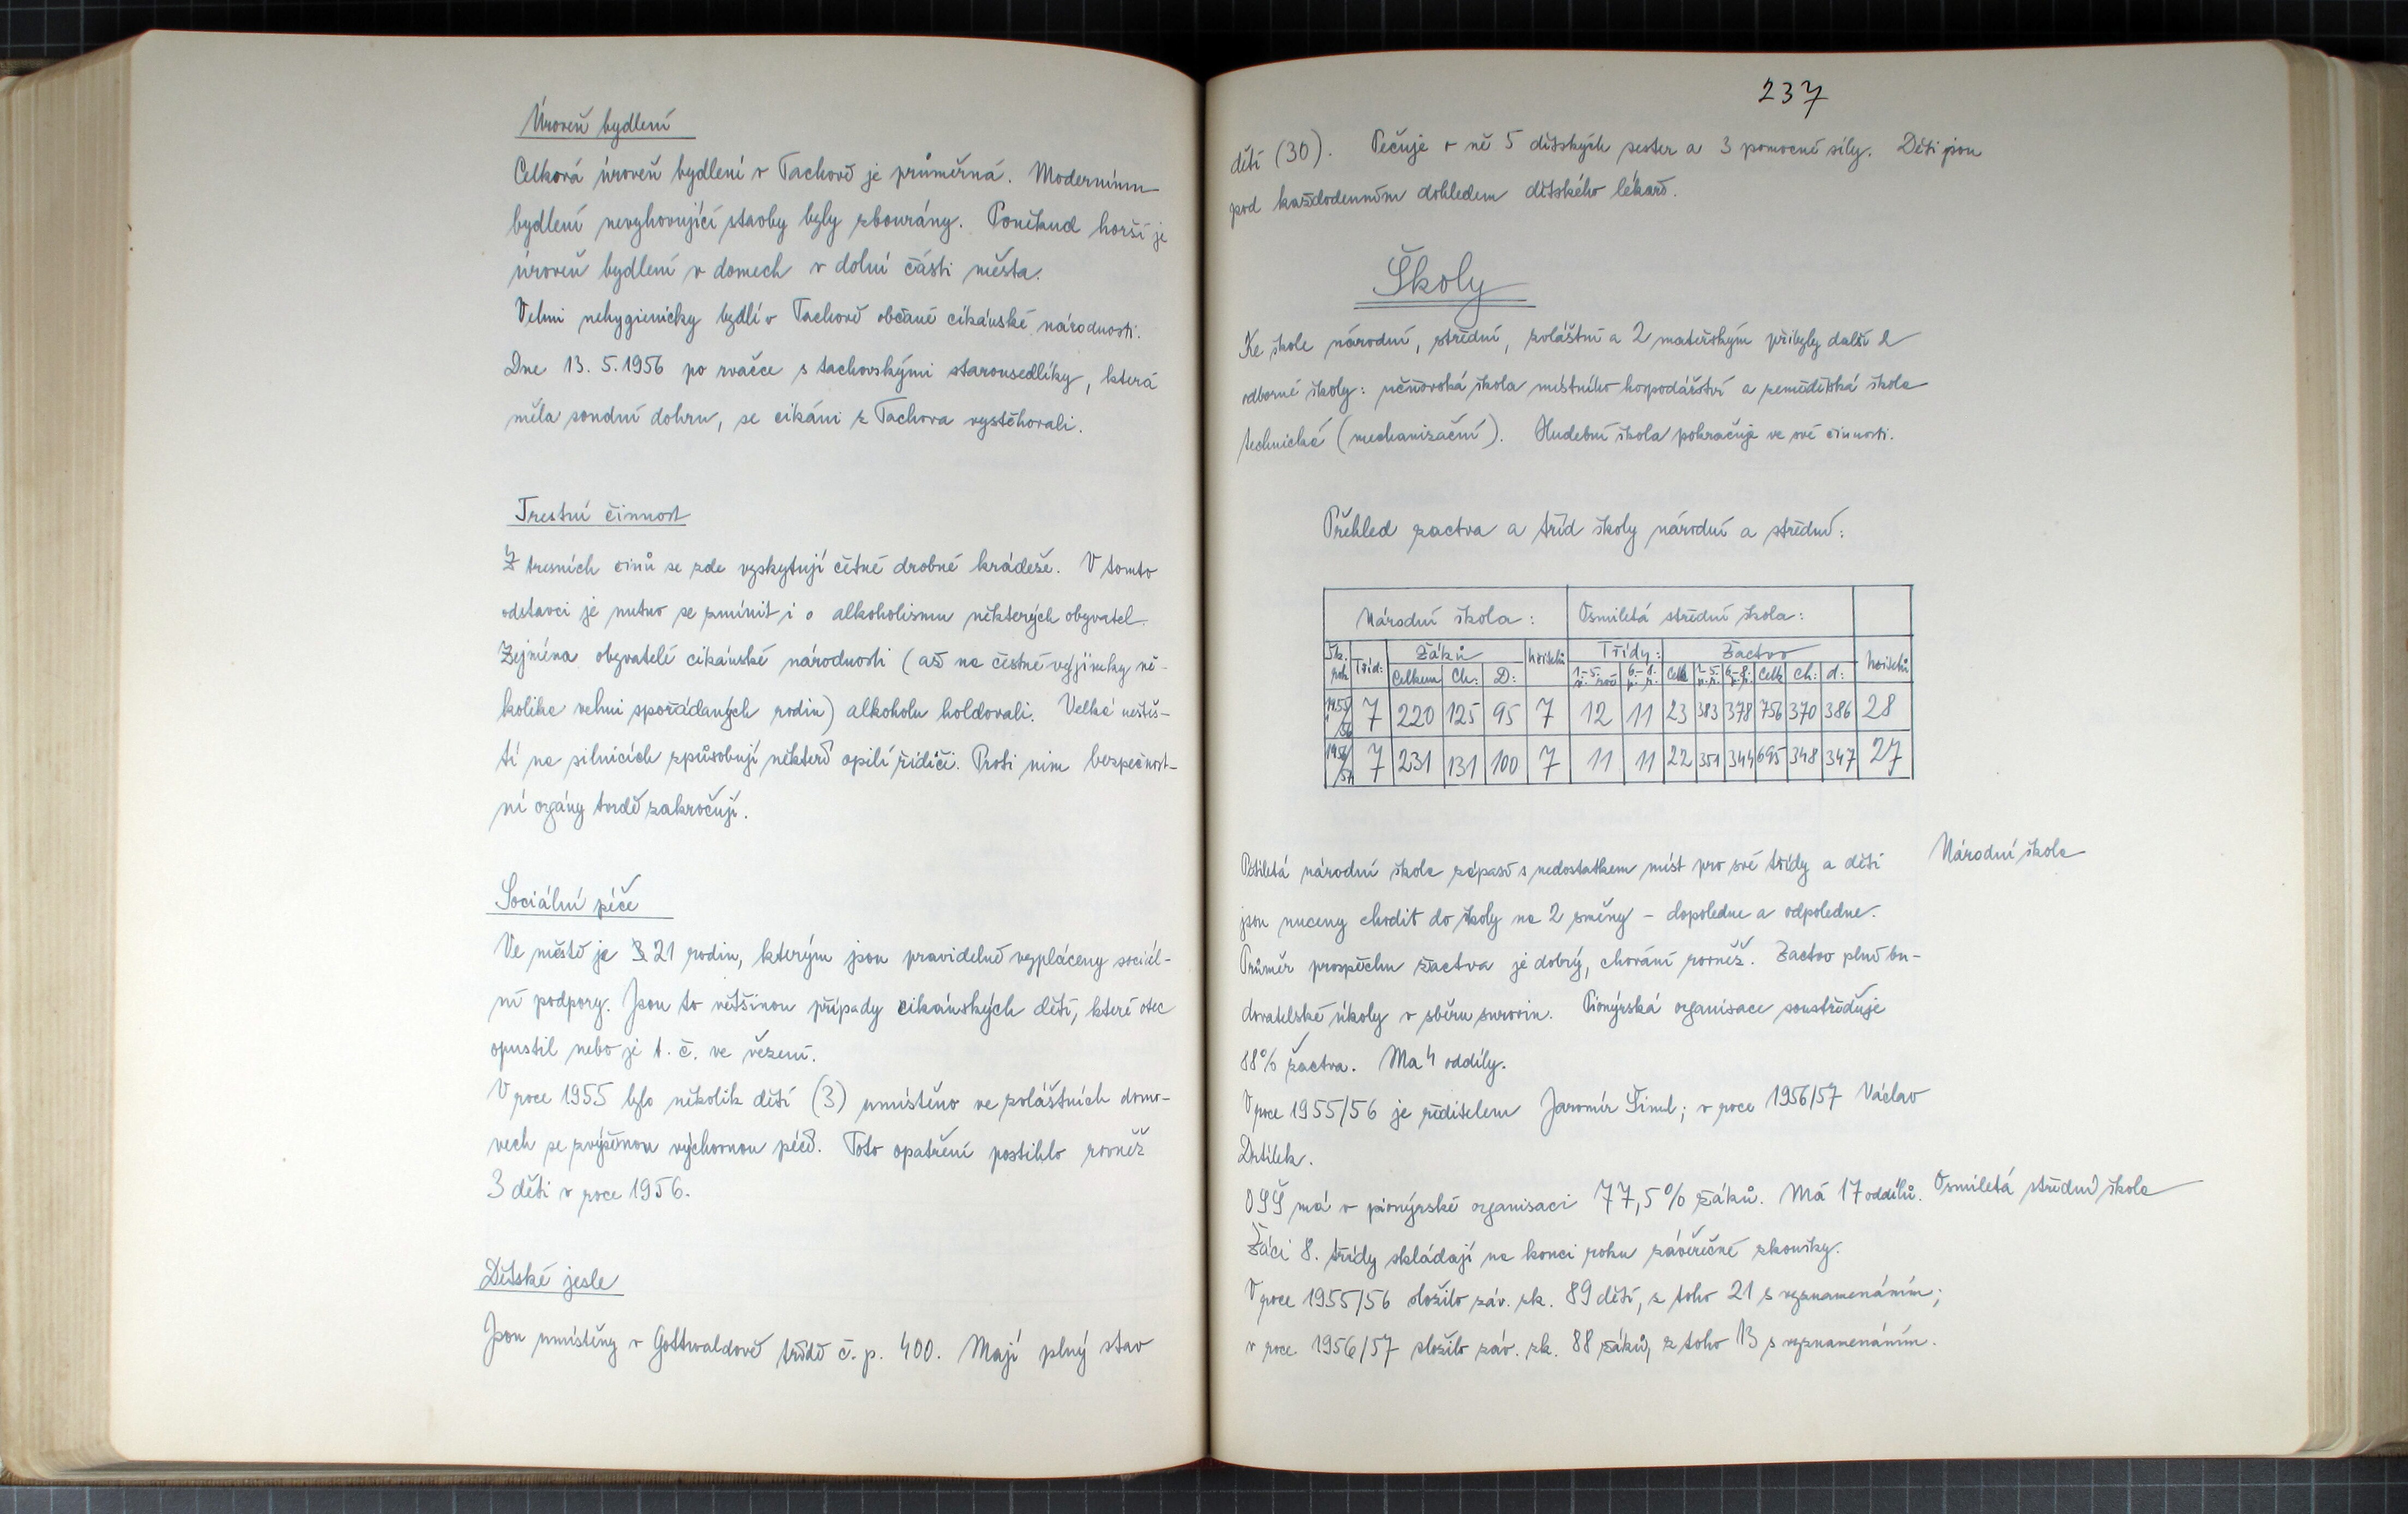 Úroveň bydlení
Celková úroveň bydlení v Tachově je průměrná. Modernímu
bydlení nevyhovující stavby byly zbourány. Poněkud horší je
úroveň bydlení v domech v dolní části města.
Velmi nehygienicky bydlí v Tachově občané cikánské národnosti.
Dne 13. 5. 1956 po rvačce s tachovskými starousedlíky, která
měla soudní dohru, se cikáni z Tachova vystěhovali.
Trestní činnost
Z tresních činů se zde vyskytují četné drobné krádeže. V tomto
odstavci je nutno se zmínit i o alkoholismu některých obyvatel.
Zejména obyvatelé cikánské národnosti (až na čestné vyjímky ně-
kolika velmi spořádaných rodin) alkoholu holdovali. Velké neštěs-
tí na silnicích způsobují někteří opilí řidiči. Proti nim bezpečnost-
ní orgány tvrdě zakročují.
Sociální péče
Ve městě je 21 rodin, kterým jsou pravidelně vypláceny sociál-
ní podpory. Jsou to většinou případy cikánských dětí, které otec
opustil nebo je t. č. ve vězení.
V roce 1955 bylo několik dětí (3) umístěno ve zvláštních domo-
vech se zvýšenou výchovnou péčí. Toto opatření postihlo rovněž
3 děti v roce 1956.
Dětské jesle
Jsou umístěny v Gottwaldově třídě č. p. 400. Mají plný stav
237
dětí (30). Pečuje o ně 5 dětských sester a 3 pomocné síly. Děti jsou
pod každodenním dohledem dětského lékaře.
Školy
Ke škole národní, střední, zvláštní a 2 mateřským přibyly další 2
odborné školy: učňovská škola místního hospodářství a zemědělská škola
technické (mechanizační). Hudební škola pokračuje ve své činnosti.
Přehled žactva a tříd školy národní a střední:
Národní škola: Osmiletá střední škola:
Šk. rok Tříd: Žáků Učitelů Třídy: Žactvo Učitelů
Celkem Ch: D: 1.-5. p. roč 6.-8. p. r. Celk 1.-5. p. r. 6.-8. p. r. Celk ch: d:
1955/56 7 220 125 95 7 12 11 23 383 378 756 370 386 28
1956/57 7 231 131 100 7 11 11 22 351 344 695 348 347 27
Pětiletá národní škola zápasí s nedostatkem míst pro své třídy a děti Národní škola
jsou nuceny chodit do školy na 2 směny - dopoledne a odpoledne.
Průměr prospěchu žactva je dobrý, chování rovněž. Žactvo plní bu-
dovatelské úkoly v sběru surovin. Pionýrská organisace soustřeďuje
88% žactva. Ma 4 oddíly.
V roce 1955/56 je ředitelem Jaromír Šiml; v roce 1956/57 Václav
Drtílek.
OSŠ má v pionýrské organisaci 77,5% žáků. Má 17 oddílů. Osmiletá střední škola
Žáci 8. třídy skládají na konci roku závěrečné zkoušky.
V roce 1955/56 složilo záv. zk. 89 dětí, z toho 21 s vyznamenáním;
v roce 1956/57 složilo záv. zk. 88 žáků, z toho 13 s vyznamenáním.